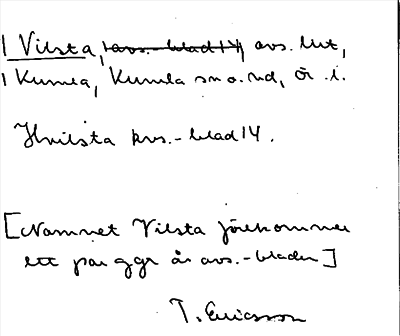 Vilsta, avs.-blad 14, avs. lut,
Kumla, Kumla sn o. hd, Ör. l.
Hvilsta kvs.-blad 14.
[Namnet Vilsta förekommer
ett par ggr år avs.-bladen]
T. Ericsson